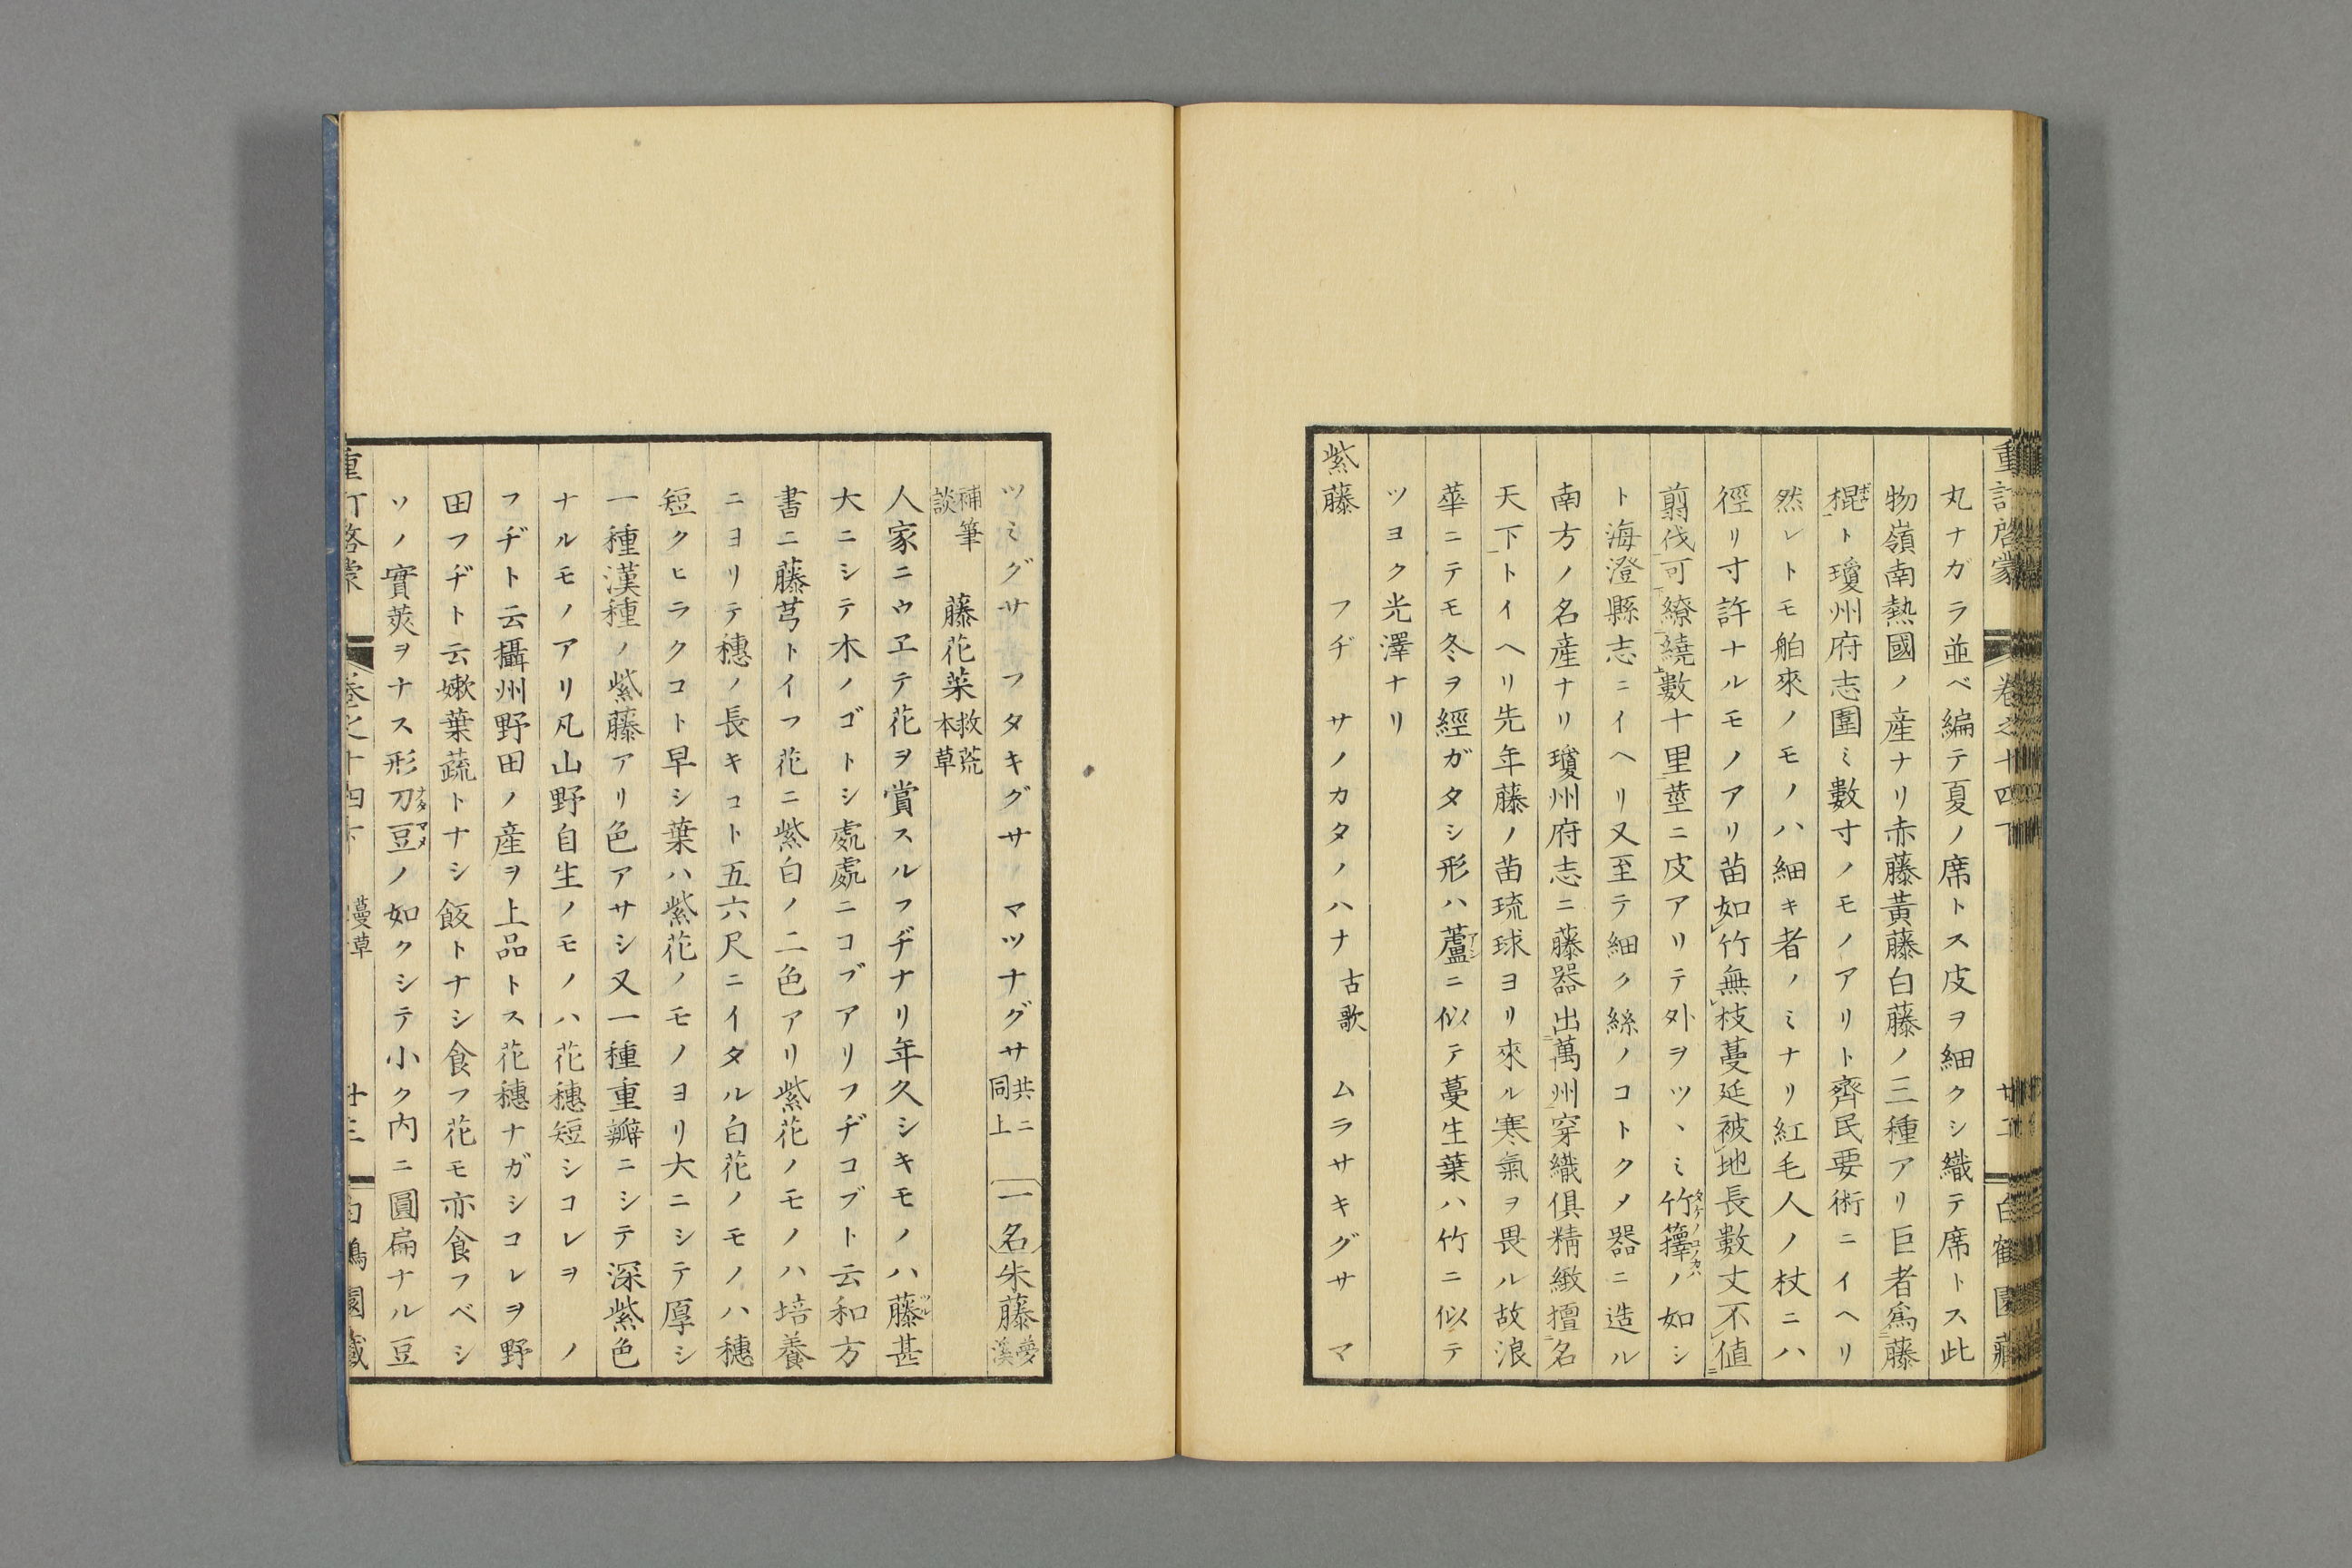 重訂啓蒙 卷之十四下 廿二 白鶴園藏
丸ナガラ並ベ編テ夏ノ席トス皮ヲ細クシ織テ席トス此
物嶺南熱國ノ産ナリ赤藤黃藤白藤ノ三種アリ巨者爲藤
棍ト瓊州府志圍ミ數寸ノモノアリト齊民要術ニイヘリ
然レトモ舶來ノモノハ細キ者ノミナリ紅毛人ノ杖ニハ
徑リ寸許ナルモノアリ苗如竹無枝蔓延被地長數丈不値
翦伐可繚繞數十里莖ニ皮アリテ外ヲツヽミ竹籜ノ如シ
ト海澄縣志ニイヘリ又至テ細ク絲ノコトクメ器ニ造ル
南方ノ名産ナリ瓊州府志ニ藤器出萬州穿織俱精緻擅名
天下トイヘリ先年藤ノ苗琉球ヨリ來ル寒氣ヲ畏ル故浪
華ニテモ冬ヲ經ガタシ形ハ蘆ニ似テ蔓生葉ハ竹ニ似テ
ツヨク光澤ナリ
紫藤 フヂ サノカタノハナ 古歌 ムラサキグサ マ
ツミグサ フタキグサ マツナグサ 共ニ同上 一名朱藤 夢溪
補筆談 藤花菜 救荒本草
人家ニウヱテ花ヲ賞スルフヂナリ年久シキモノハ藤甚
大ニシテ木ノゴトシ處處ニコブアリフヂコブト云和方
書ニ藤芎トイフ花ニ紫白ノ二色アリ紫花ノモノハ培養
ニヨリテ穗ノ長キコト五六尺ニイタル白花ノモノハ穗
短クヒラクコト早シ葉ハ紫花ノモノヨリ大ニシテ厚シ
一種漢種ノ紫藤アリ色アサシ又一種重瓣ニシテ深紫色
ナルモノアリ凡山野自生ノモノハ花穗短シコレヲノ
フヂト云攝州野田ノ産ヲ上品トス花穗ナガシコレヲ野
田フヂト云嫩葉蔬トナシ飯トナシ食フ花モ亦食フベシ
ソノ實莢ヲナス形刀豆ノ如クシテ小ク內ニ圓扁ナル豆
重訂啓蒙 卷之十四下 蔓草 廿三 白鶴園藏